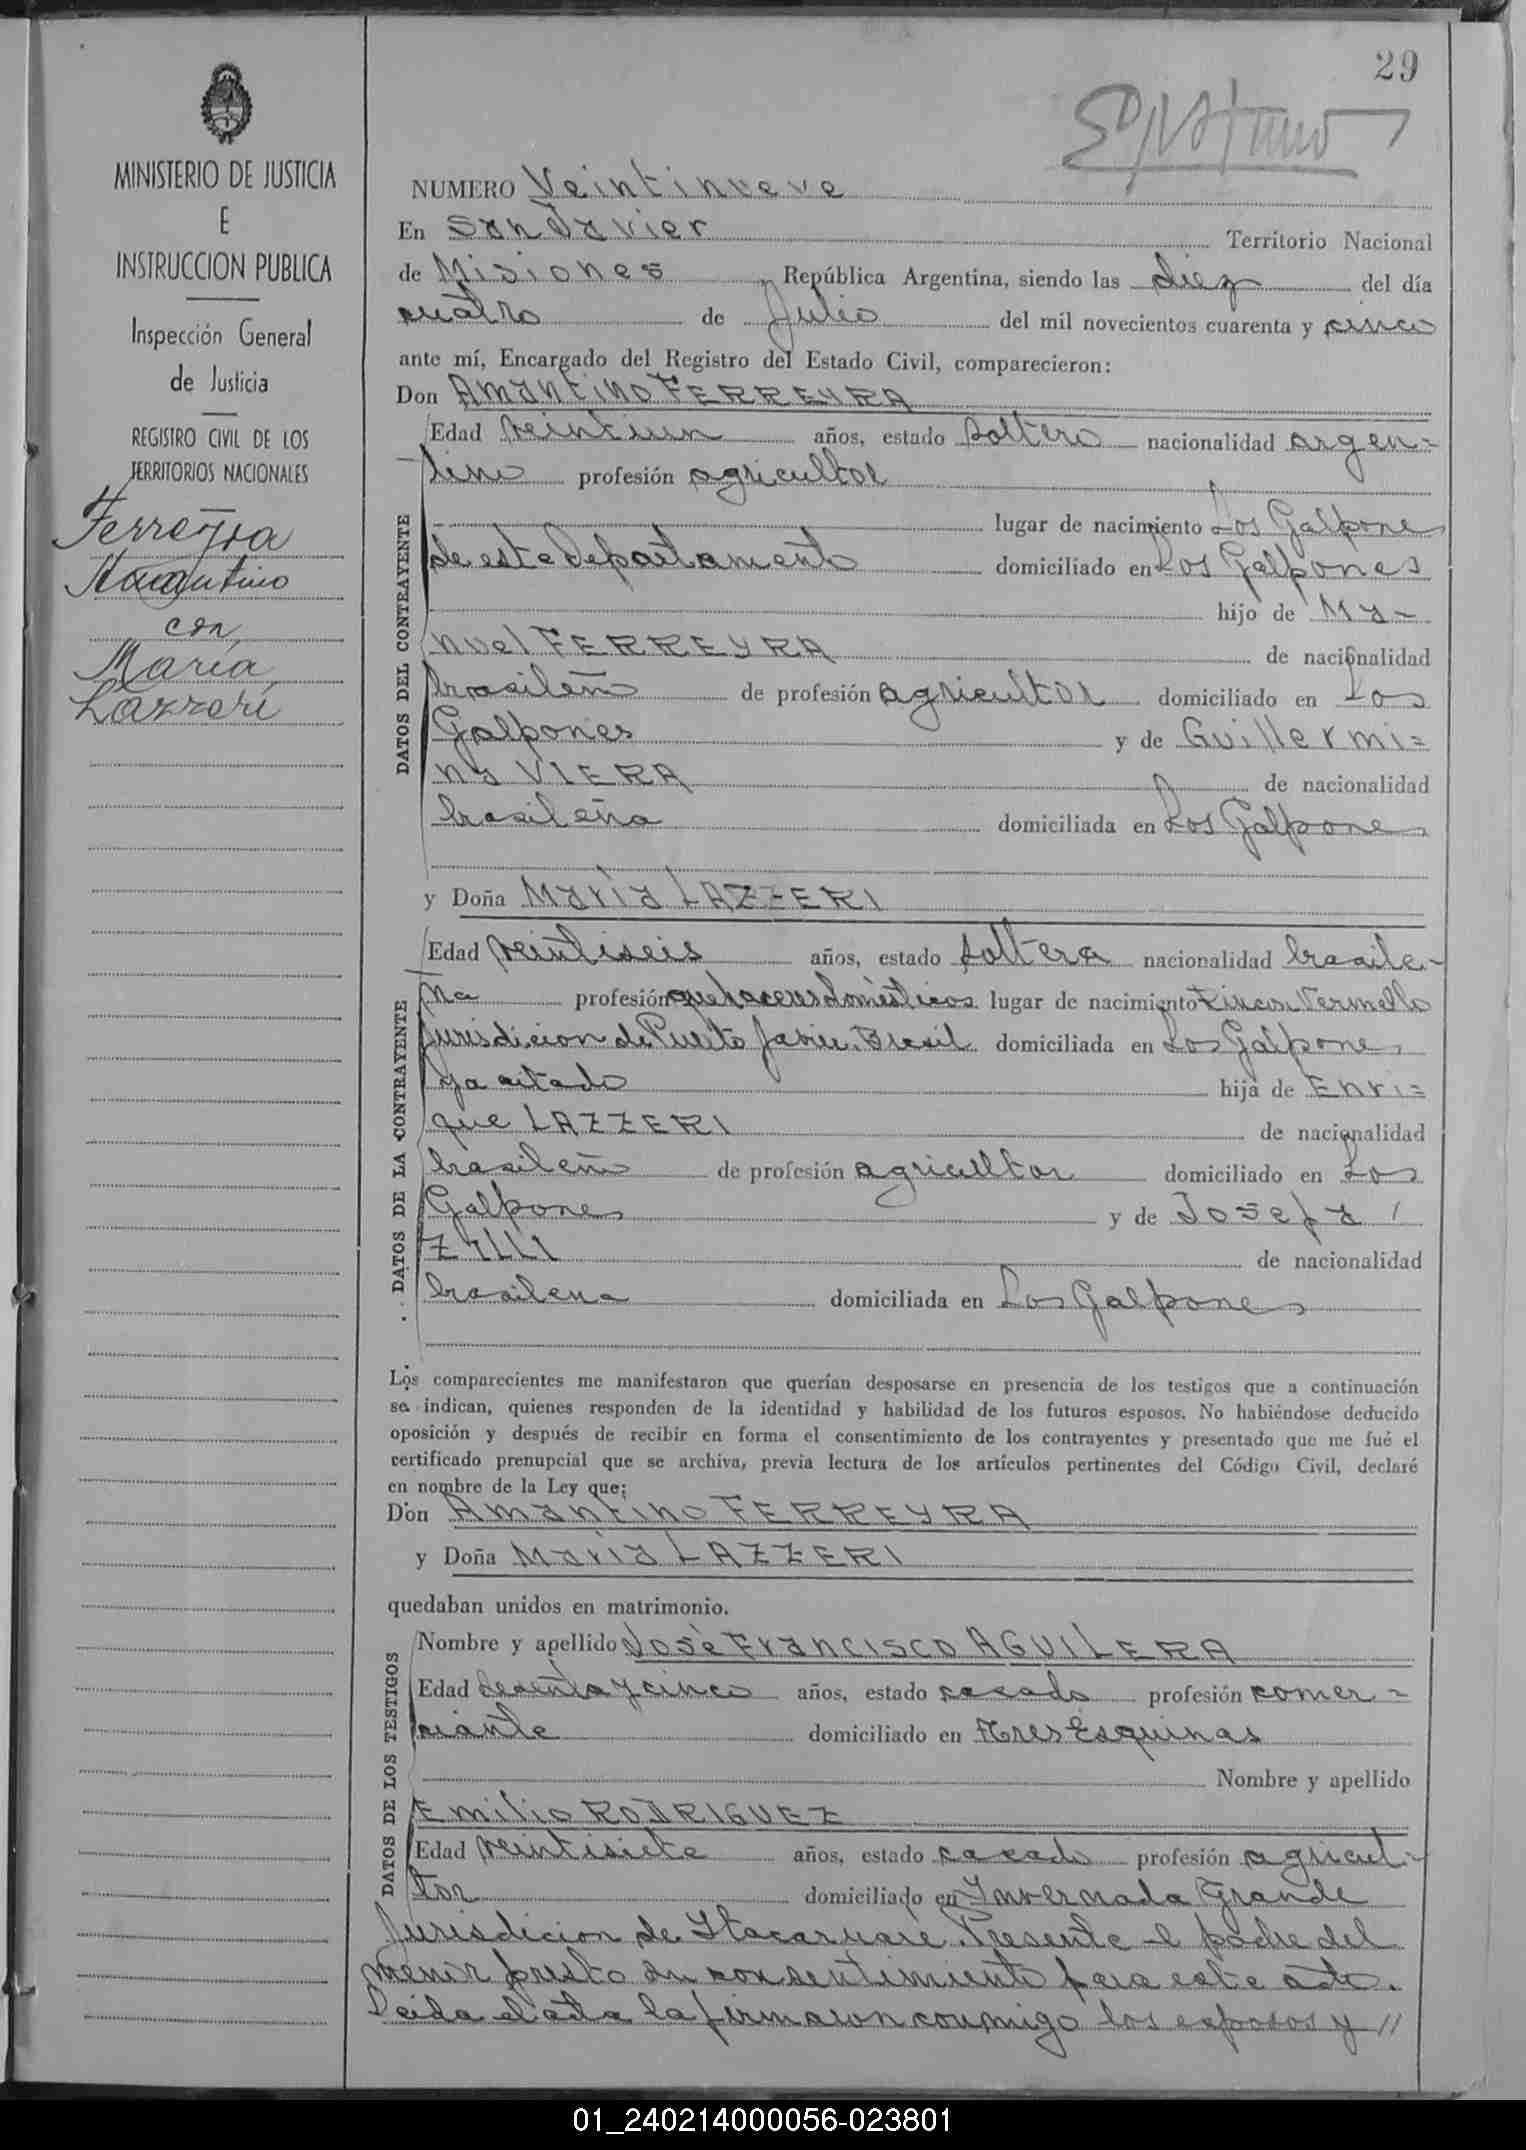 29
MINISTERIO DE JUSTICIA
E
INSTRUCCION PUBLICA
Inspección General
de Justicia
REGISTRO CIVIL DE LOS
TERRITORIOS NACIONALES
Ferreyra
Amantino
con
María
Lazzeri
NUMERO Veintinueve
En San Javier Territorio Nacional
de Misiones República Argentina, siendo las diez del día
cuatro de Julio del mil novecientos cuarenta y cinco
ante mí, Encargado del Registro del Estado Civil, comparecieron:
Don Amantino FERREYRA
DATOS DEL CONTRAYENTE
Edad veintiun años, estado soltero nacionalidad argen=
tino profesión agricultor
lugar de nacimiento Los Galpones
de este Departamento domiciliado en Los Galpones
hijo de Ma-
nuel FERREYRA de nacionalidad
brasileño de profesión agricultor domiciliado en Los
Galpones y de Guillermi=
na VIERA de nacionalidad
brasileña domiciliada en Los Galpones
y Doña María LAZZERI
DATOS DE LA CONTRAYENTE
Edad veintiseis años, estado soltera nacionalidad brasile-
ña profesión quehaceres domésticos lugar de nacimiento Rincon Vermello
Jurisdicion de Puerto Javier Brasil domiciliada en Los Galpones
ya citado hija de Enri=
que LAZZERI de nacionalidad
brasileño de profesión agricultor domiciliado en Los
Galpones y de Josefa
ZILLI de nacionalidad
brasilena domiciliada en Los Galpones
Los comparecientes me manifestaron que querían desposarse en presencia de los testigos que a continuación
se indican, quienes responden de la identidad y habilidad de los futuros esposos. No habiéndose deducido
oposición y después de recibir en forma el consentimiento de los contrayentes y presentado que me fué el
certificado prenupcial que se archiva, previa lectura de los artículos pertinentes del Código Civil, declaré
en nombre de la Ley que:
Don Amantino FERREYRA
y Doña María LAZZERI
quedaban unidos en matrimonio.
DATOS DE LOS TESTIGOS
Nombre y apellido José Francisco AGUILERA
Edad sesenta y cinco años, estado casado profesión comer=
ciante domiciliado en Tres Esquinas
Nombre y apellido
Emilio RODRIGUEZ
Edad veintisiete años, estado casado profesión agricul-
tor domiciliado en Invernada Grande
Jurisdicion de Itacaruare. Presente el padre del
menor presto su consentimiento para este acto.
Leida el acta la firmaron conmigo los esposos y //
01_240214000056-023801